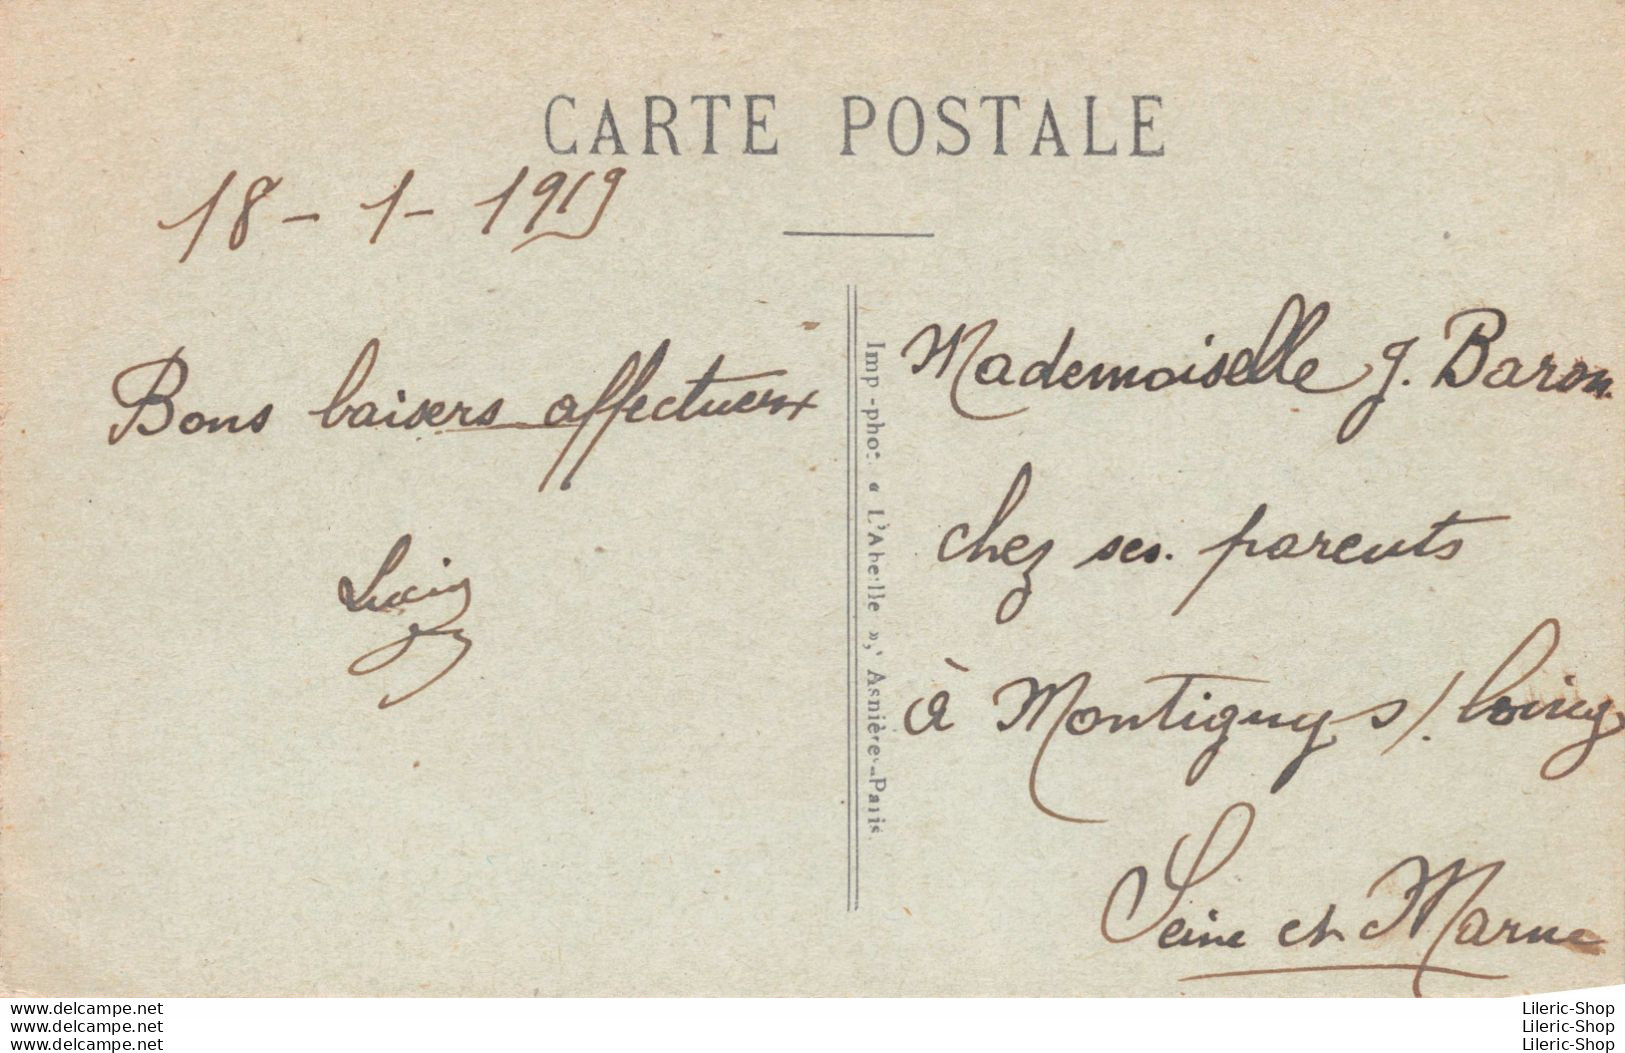 CARTE POSTALE
18 - 1 - 1919
Bons baisers affectueux
Lucien
Imp-phot. « L'Abeille », Asnières-Paris.
Mademoiselle J. Baron.
chez ses. parents
à Montigny s/. Loing
Seine et Marne
www.delcampe.net
www.delcampe.net
www.delcampe.net
Lileric-Shop
Lileric-Shop
Lileric-Shop